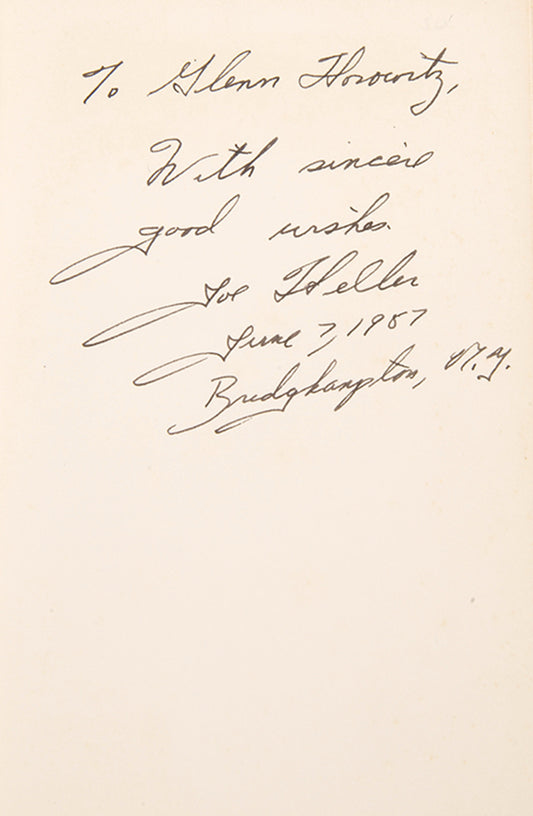 To Glenn Horowitz,
With sincere
good wishes.
Joe Heller
June 7, 1987
Bridghampton, N.Y.